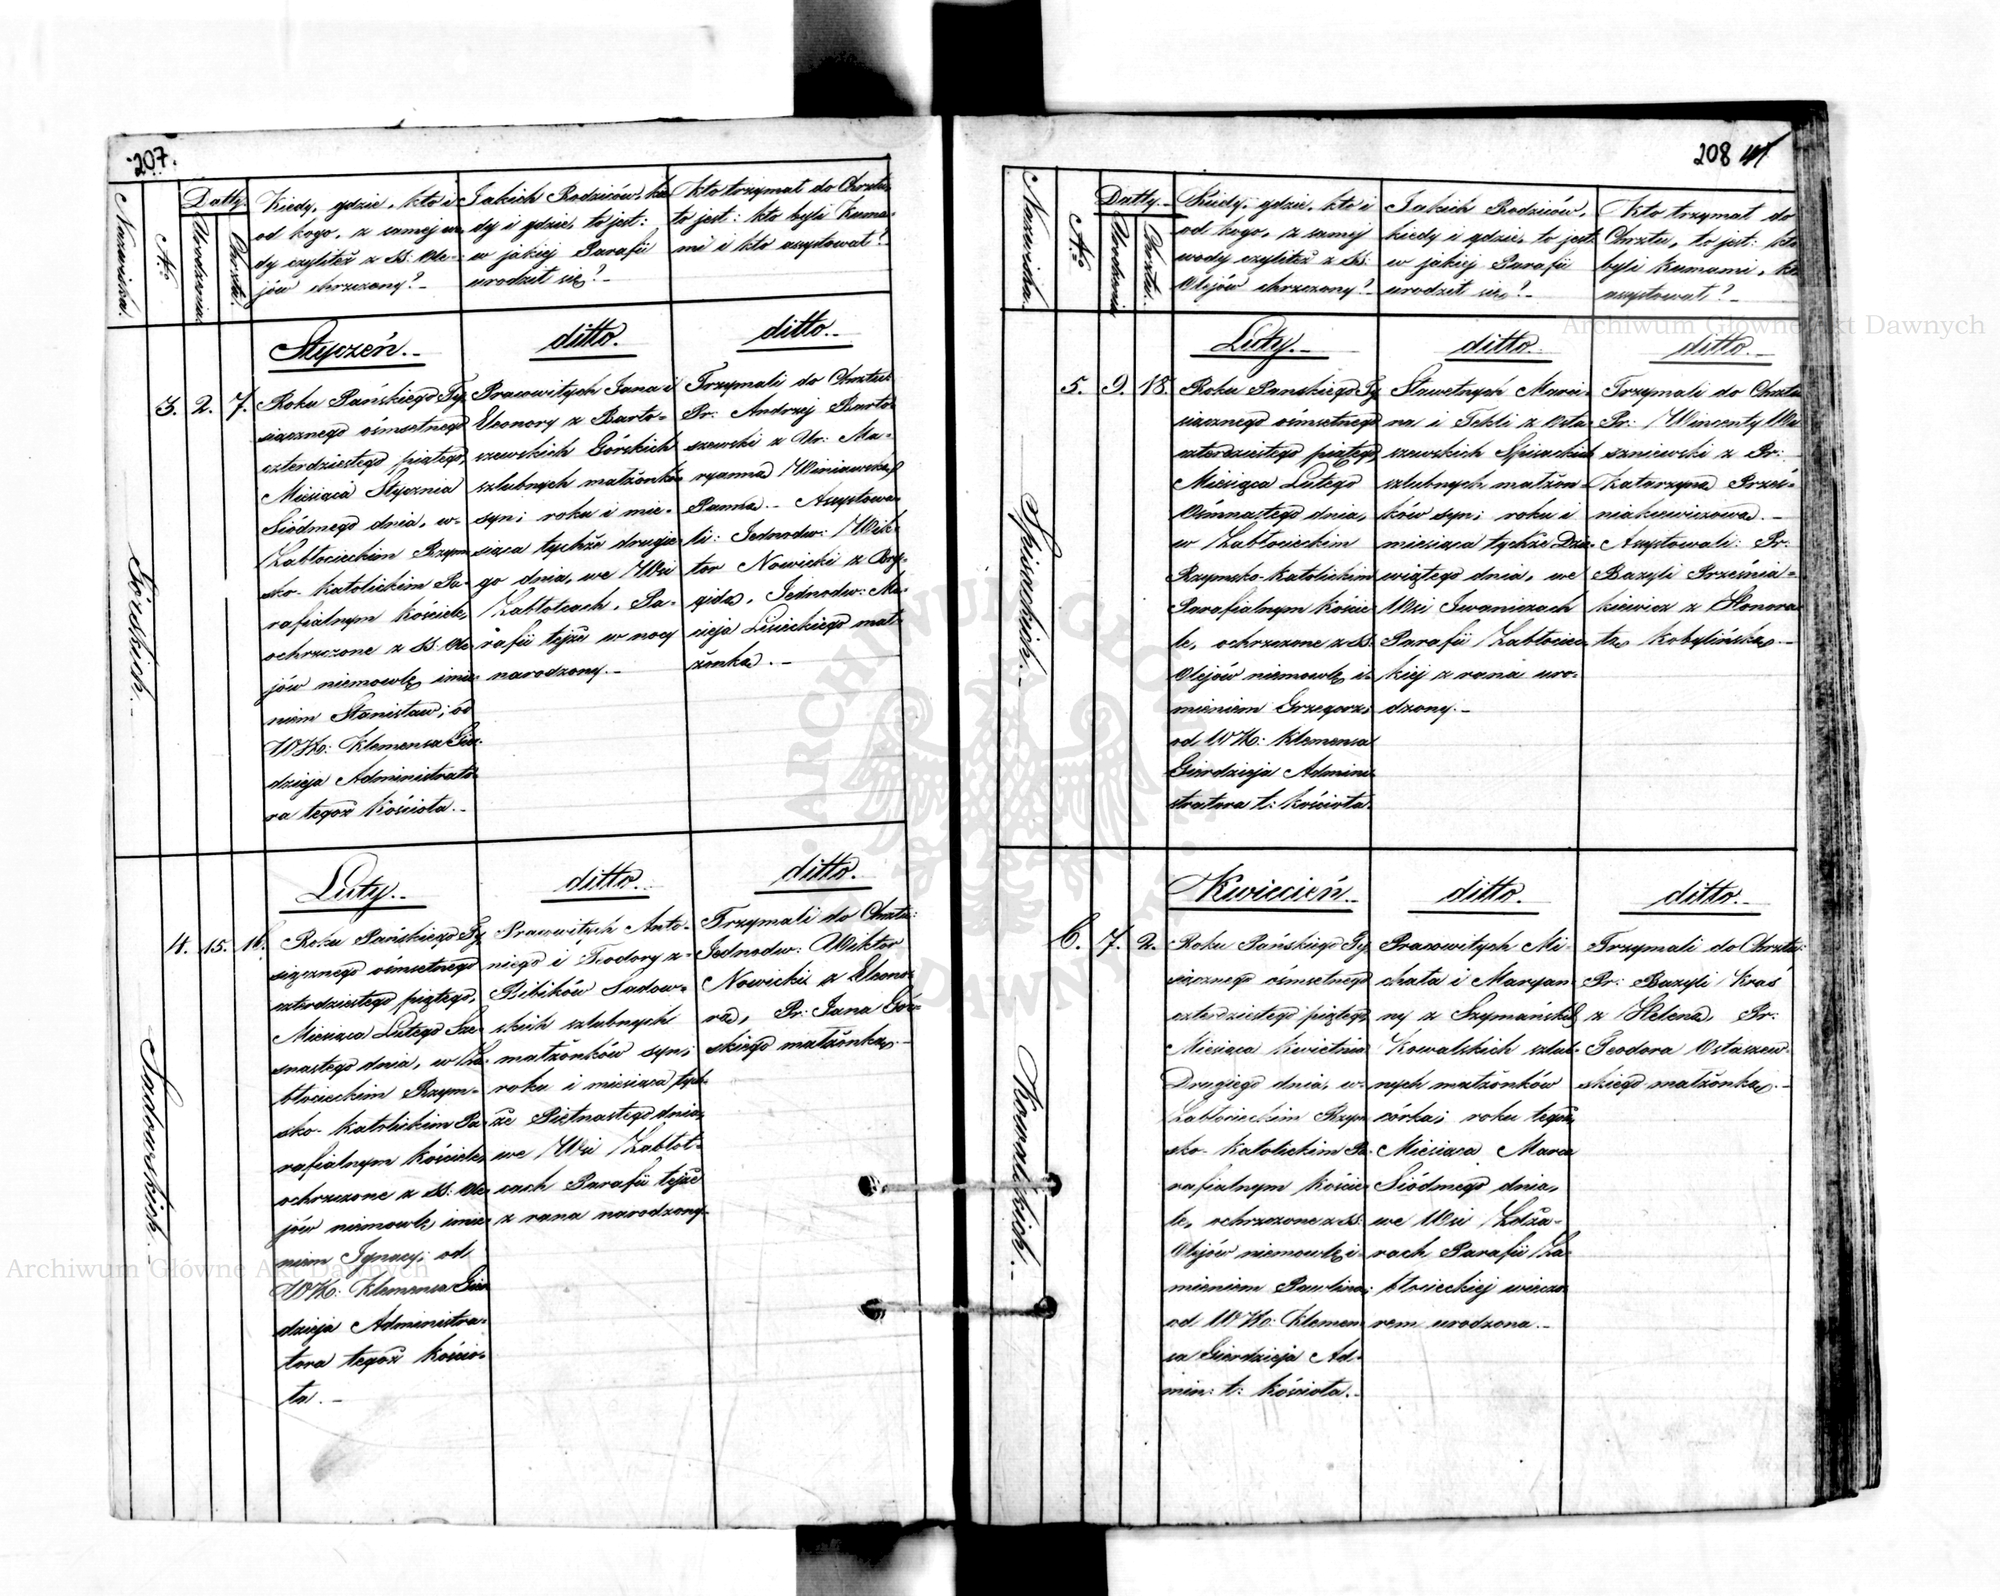 207.
Nazwiska.
No
Datty.
Urodzenia.
Chrztu.
Kiedy, gdzie, kto i
od kogo, z samej wo
dy czyliteż z SS: Ole-
jów chrzczony? -
Jakich Rodziców, kie
dy i gdzie, to jest:
w jakiej Parafii
urodził się? -
Kto trzymał do Chrztu,
to jest: kto byli Kuma-
mi i kto assystował?
Styczeń. -
ditto.
ditto. -
Górskich. -
3.
2.
7.
Roku Pańskiego Ty
siącznego ośmsetnego
czterdziestego piątego,
Miesiąca Stycznia
Siódmego dnia, w-
Zabłocieckim Rzym
sko-katolickim Pa-
rafialnym Kościele,
ochrzczone z SS: Ole
jów niemowlę imie
niem Stanisław; od
WX: Klemensa Gier
dzieja Administrato
ra tegoż Kościoła. -
Pracowitych Jana i
Eleonory z Barto-
szewskich Górskich
szlubnych małżonków
syn; roku i mie-
siąca tychże drugie
go dnia, we Wsi
Zabłotcach, Pa-
rafii tejże w nocy
narodzony. -
Trzymali do Chrztu:
Pr: Andrzej Barto
szewski z Ur: Ma-
ryanną Winiawską
Panną. - Assystowa
li: Jednodw: Wik-
tor Nowicki z Bry-
gidą, Jednodw: Ma-
cieja Lisieckiego mał-
żonką. -
Luty. -
ditto. -
ditto.
Sadowskich. -
4.
15.
16.
Roku Pańskiego Ty
siącznego ośmsetnego
czterdziestego piątego,
Miesiąca Lutego Sze-
snastego dnia, w Za-
błocieckim Rzym-
sko-katolickim Pa-
rafialnym Kościele,
ochrzczone z SS: Ole-
jów niemowlę imie-
niem Ignacy; od
WX: Klemensa Gier
dzieja Administra-
tora tegoż Kościo-
ła. -
Pracowitych Anto-
niego i Teodory z-
Bibików Sadow-
skich szlubnych
małżonków syn;
roku i miesiąca tych-
że Piętnastego dnia,
we Wsi Zabłot-
cach Parafii tejże
z rana narodzony. -
Trzymali do Chrztu:
Jednodw: Wiktor
Nowicki z Eleono-
rą, Pr: Jana Gór-
skiego małżonką. -
208
Nazwiska.
No
Datty. -
Urodzenia.
Chrztu.
Kiedy, gdzie, kto i
od kogo, z samej
wody czyliteż z SS:
Olejów chrzczony? -
Jakich Rodziców,
kiedy i gdzie, to jest
w jakiej Parafii
urodził się? -
Kto trzymał do
Chrztu, to jest: kto
byli Kumami, kto
assystował? -
Luty. -
ditto. -
ditto. -
Spisackich. -
5.
9.
18.
Roku Pańskiego Ty
siącznego ośmsetnego
czterdziestego piątego,
Miesiąca Lutego
Ośmnastego dnia,
w Zabłocieckim
Rzymsko-katolickim
Parafialnym Koście
le, ochrzczone z SS:
Olejów niemowlę i-
mieniem Grzegorz;
od WX: Klemensa
Gierdzieja Admini
stratora t: Kościoła.
Sławetnych Marci-
na i Tekli z Osta-
szewskich Spisackich
szlubnych małżon-
ków syn; roku i
miesiąca tychże Dzie-
wiątego dnia, we
Wsi Iwaniczach
Parafii Zabłociec
kiej z rana uro-
dzony. -
Trzymali do Chrztu
Pr: Wincenty Wa
szniewski z Pr:
Katarzyną Prześ-
niakiewiczową. -
Assystowali: Pr:
Bazyli Prześnia-
kiewicz z Honora
tą Kobylińską. -
Kwiecień. -
ditto. -
ditto. -
Kowalskich. -
6.
7.
2.
Roku Pańskiego Ty
siącznego ośmsetnego
czterdziestego piątego,
Miesiąca Kwietnia
Drugiego dnia, w-
Zabłocieckim Rzym
sko-katolickim Pa-
rafialnym Koście
le, ochrzczone z SS:
Olejów niemowlę i-
mieniem Pawlina;
od WX: Klemen
sa Gierdzieja Ad-
min: t: Kościoła. -
Pracowitych Mi-
chała i Maryan
ny z Szymańskich
Kowalskich szlub-
nych małżonków
córka; roku tegoż,
Miesiąca Marca
Siódmego dnia,
we Wsi Zdża-
rach Parafii Za-
błocieckiej wieczo
rem urodzona. -
Trzymali do Chrztu:
Pr: Bazyli Kraś
z Heleną, Pr:
Teodora Ostaszew-
skiego małżonką. -
Archiwum Główne Akt Dawnych
Archiwum Główne Akt Dawnych